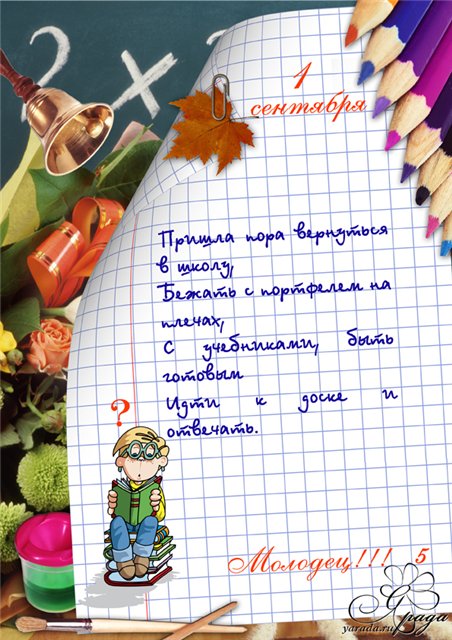 2 x 2
1
сентября
Пришла пора вернуться
в школу,
Бежать с портфелем на
плечах,
С учебниками, быть
готовым
Идти к доске и
отвечать.
?
Молодец!!! 5
Ярада
yarada.ru